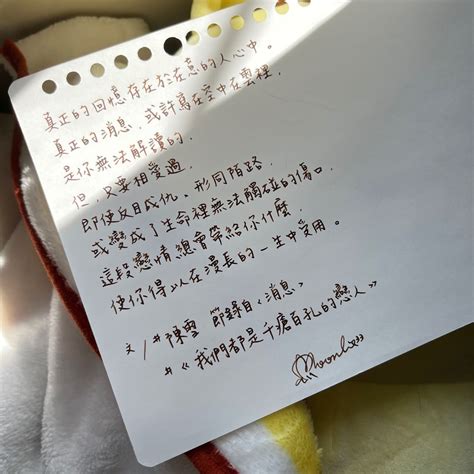 真正的回憶存在於在意的人心中.
真正的消息,或許寫在空中在雲裡.
是你無法解讀的.
但,只要相愛過.
即使反目成仇、形同陌路.
或變成了生命裡無法觸碰的傷口.
這段戀情總會等給你什麼.
使你得以在漫長的一生中受用。
文/#陳雪 節錄自〈消息〉
#《我們都是千瘡百孔的戀人》